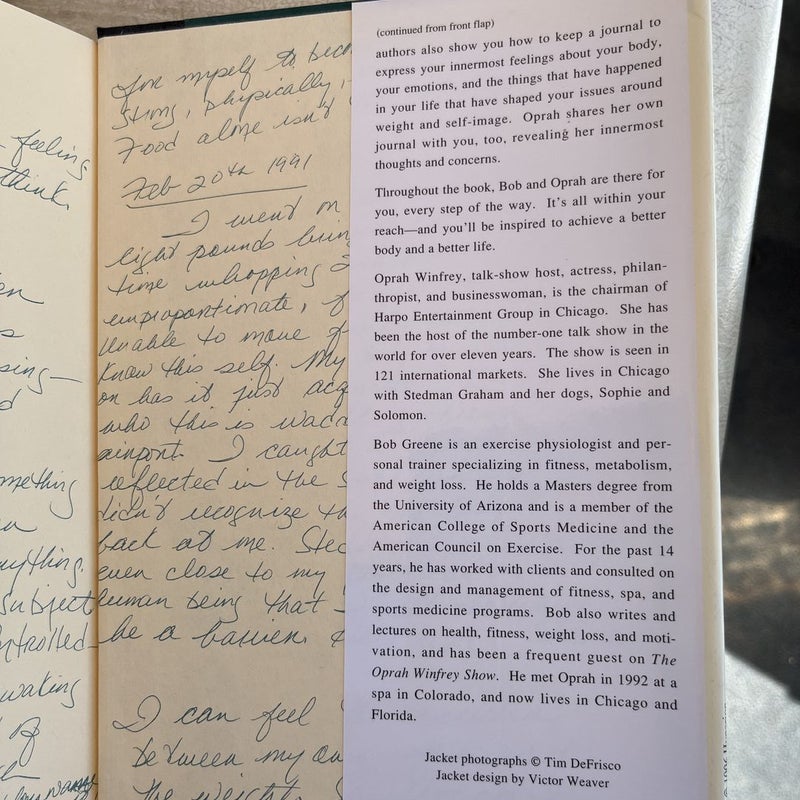 feeling
think.
for myself to bec
strong, physically,
Food alone isn't
Feb 20th 1991
I went on
eight pounds
time whopping
unproportionate,
Unable to move
Know this self. My
on has it just acq
who this is
airport. I caught
reflected in the S
didn't recognize th
back at me. Sted
even close to my
human being that
be a barrier.
I can feel
between my
the weight.
mething
ything.
Subject
ntrolled
waking
(continued from front flap)
authors also show you how to keep a journal to
express your innermost feelings about your body,
your emotions, and the things that have happened
in your life that have shaped your issues around
weight and self-image. Oprah shares her own
journal with you, too, revealing her innermost
thoughts and concerns.
Throughout the book, Bob and Oprah are there for
you, every step of the way. It's all within your
reach—and you'll be inspired to achieve a better
body and a better life.
Oprah Winfrey, talk-show host, actress, philan-
thropist, and businesswoman, is the chairman of
Harpo Entertainment Group in Chicago. She has
been the host of the number-one talk show in the
world for over eleven years. The show is seen in
121 international markets. She lives in Chicago
with Stedman Graham and her dogs, Sophie and
Solomon.
Bob Greene is an exercise physiologist and per-
sonal trainer specializing in fitness, metabolism,
and weight loss. He holds a Masters degree from
the University of Arizona and is a member of the
American College of Sports Medicine and the
American Council on Exercise. For the past 14
years, he has worked with clients and consulted on
the design and management of fitness, spa, and
sports medicine programs. Bob also writes and
lectures on health, fitness, weight loss, and moti-
vation, and has been a frequent guest on The
Oprah Winfrey Show. He met Oprah in 1992 at a
spa in Colorado, and now lives in Chicago and
Florida.
Jacket photographs © Tim DeFrisco
Jacket design by Victor Weaver
© 1996 Hyperion